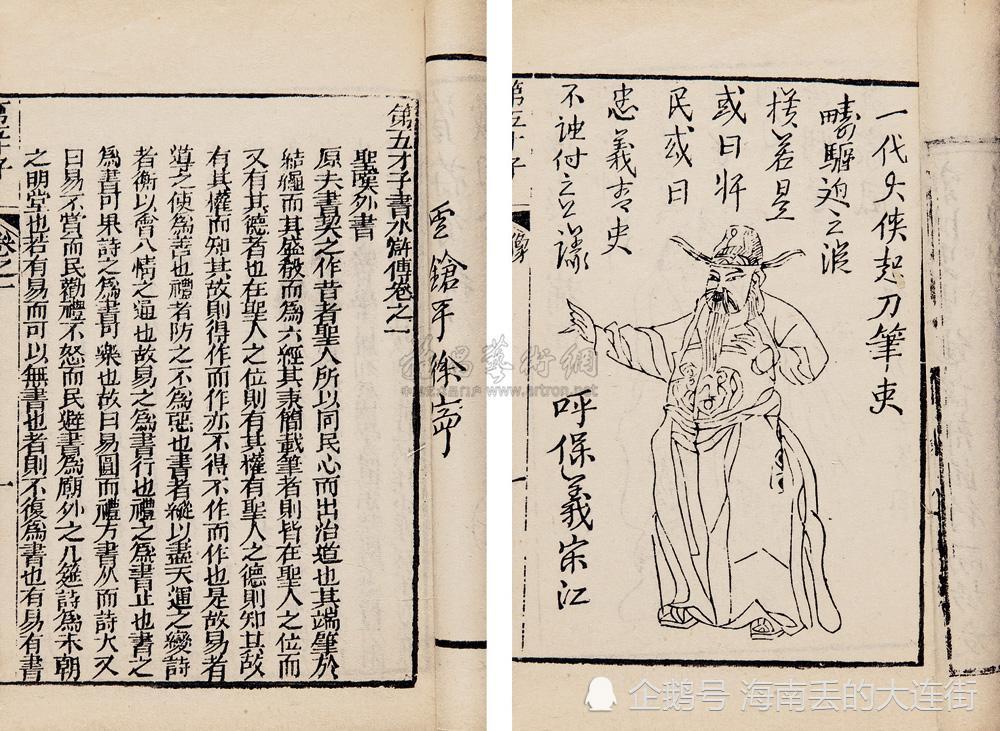 金鎗手徐寧
第五才子書水滸傳卷之一
聖嘆外書
原夫書契之作昔者聖人所以同民心而出治道也其端肇於
結繩而其盛殽而為六經其秉簡載筆者則皆在聖人之位而
又有其德者也在聖人之位則有其權有聖人之德則知其故
有其權而知其故則得作而作亦不得不作而作也是故易者
導之使為善也禮者防之不為惡也書者縱以盡天運之變詩
者衡以會人情之通也故易之為書行也禮之為書止也書之
為書可果詩之為書可樂也故曰易圓而禮方書久而詩大又
曰易不賞而民勸禮不怒而民避書為廟外之几筵詩為未朝
之明堂也若有易而可以無書也者則不復為書也有易有書
第五才子 卷之一 一
一代大俠起刀筆吏
疇驅迫之
橫若是
或曰奸
民或曰
忠義青史
不誅付之議
呼保義宋江
第五才子 像
雅昌藝術網
www.artron.net
企鹅号 海南丢的大连街